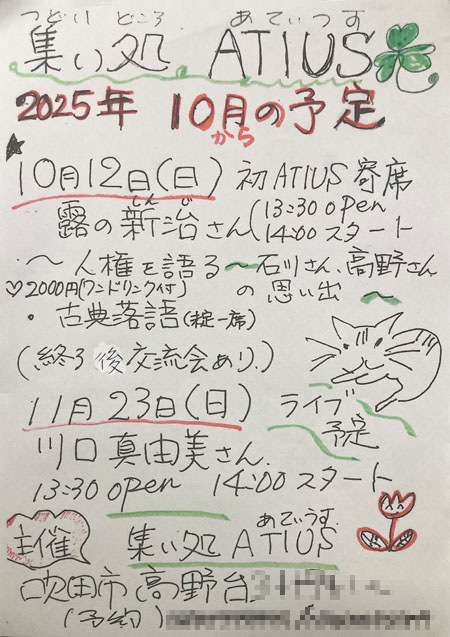 つどい どころ あてぃうす
集い処 ATIUS
2025年 10月の予定
から
★
10月12日(日) 初ATIUS寄席
しんじ
露の新治さん(13:30 open
14:00 スタート
〜人権を語る〜石川さん、高野さん
♡2000円(ワンドリンク付) の思い出 〜
・古典落語(錠一席)
(終了後交流会あり)
11月23日(日) ライブ予定
川口真由美さん.
13:30 open 14:00 スタート
あてぃうす
主催 集い処 ATIUS
吹田市高野台
(予約)